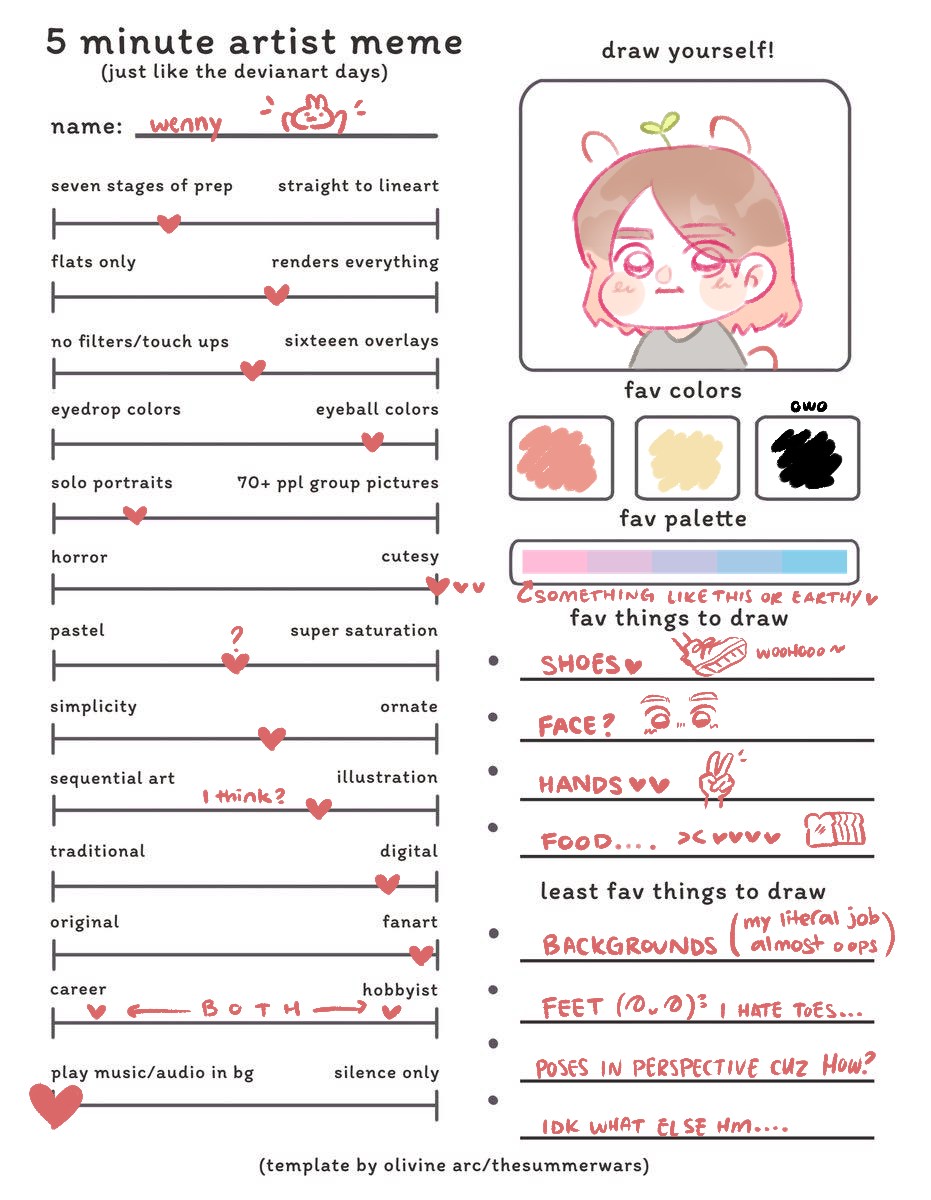 5 minute artist meme
(just like the devianart days)
name: wenny
seven stages of prep straight to lineart
flats only renders everything
no filters/touch ups sixteeen overlays
eyedrop colors eyeball colors
solo portraits 70+ ppl group pictures
horror cutesy
pastel super saturation
?
simplicity ornate
sequential art illustration
I think?
traditional digital
original fanart
career hobbyist
BOTH
play music/audio in bg silence only
draw yourself!
fav colors
owo
fav palette
SOMETHING LIKE THIS OR EARTHY
fav things to draw
SHOES WOOHOOO~
FACE?
HANDS
FOOD.... ><
least fav things to draw
BACKGROUNDS (my literal job
almost oops)
FEET I HATE TOES...
POSES IN PERSPECTIVE CUZ HOW?
IDK WHAT ELSE HM....
(template by olivine arc/thesummerwars)